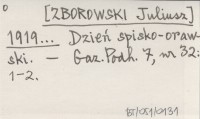 0
[ZBOROWSKI Juliusz]
1919... Dzień spisko-oraw-
ski. — Gaz. Podh. 7, nr 32:
1-2.
BJ/051/0131